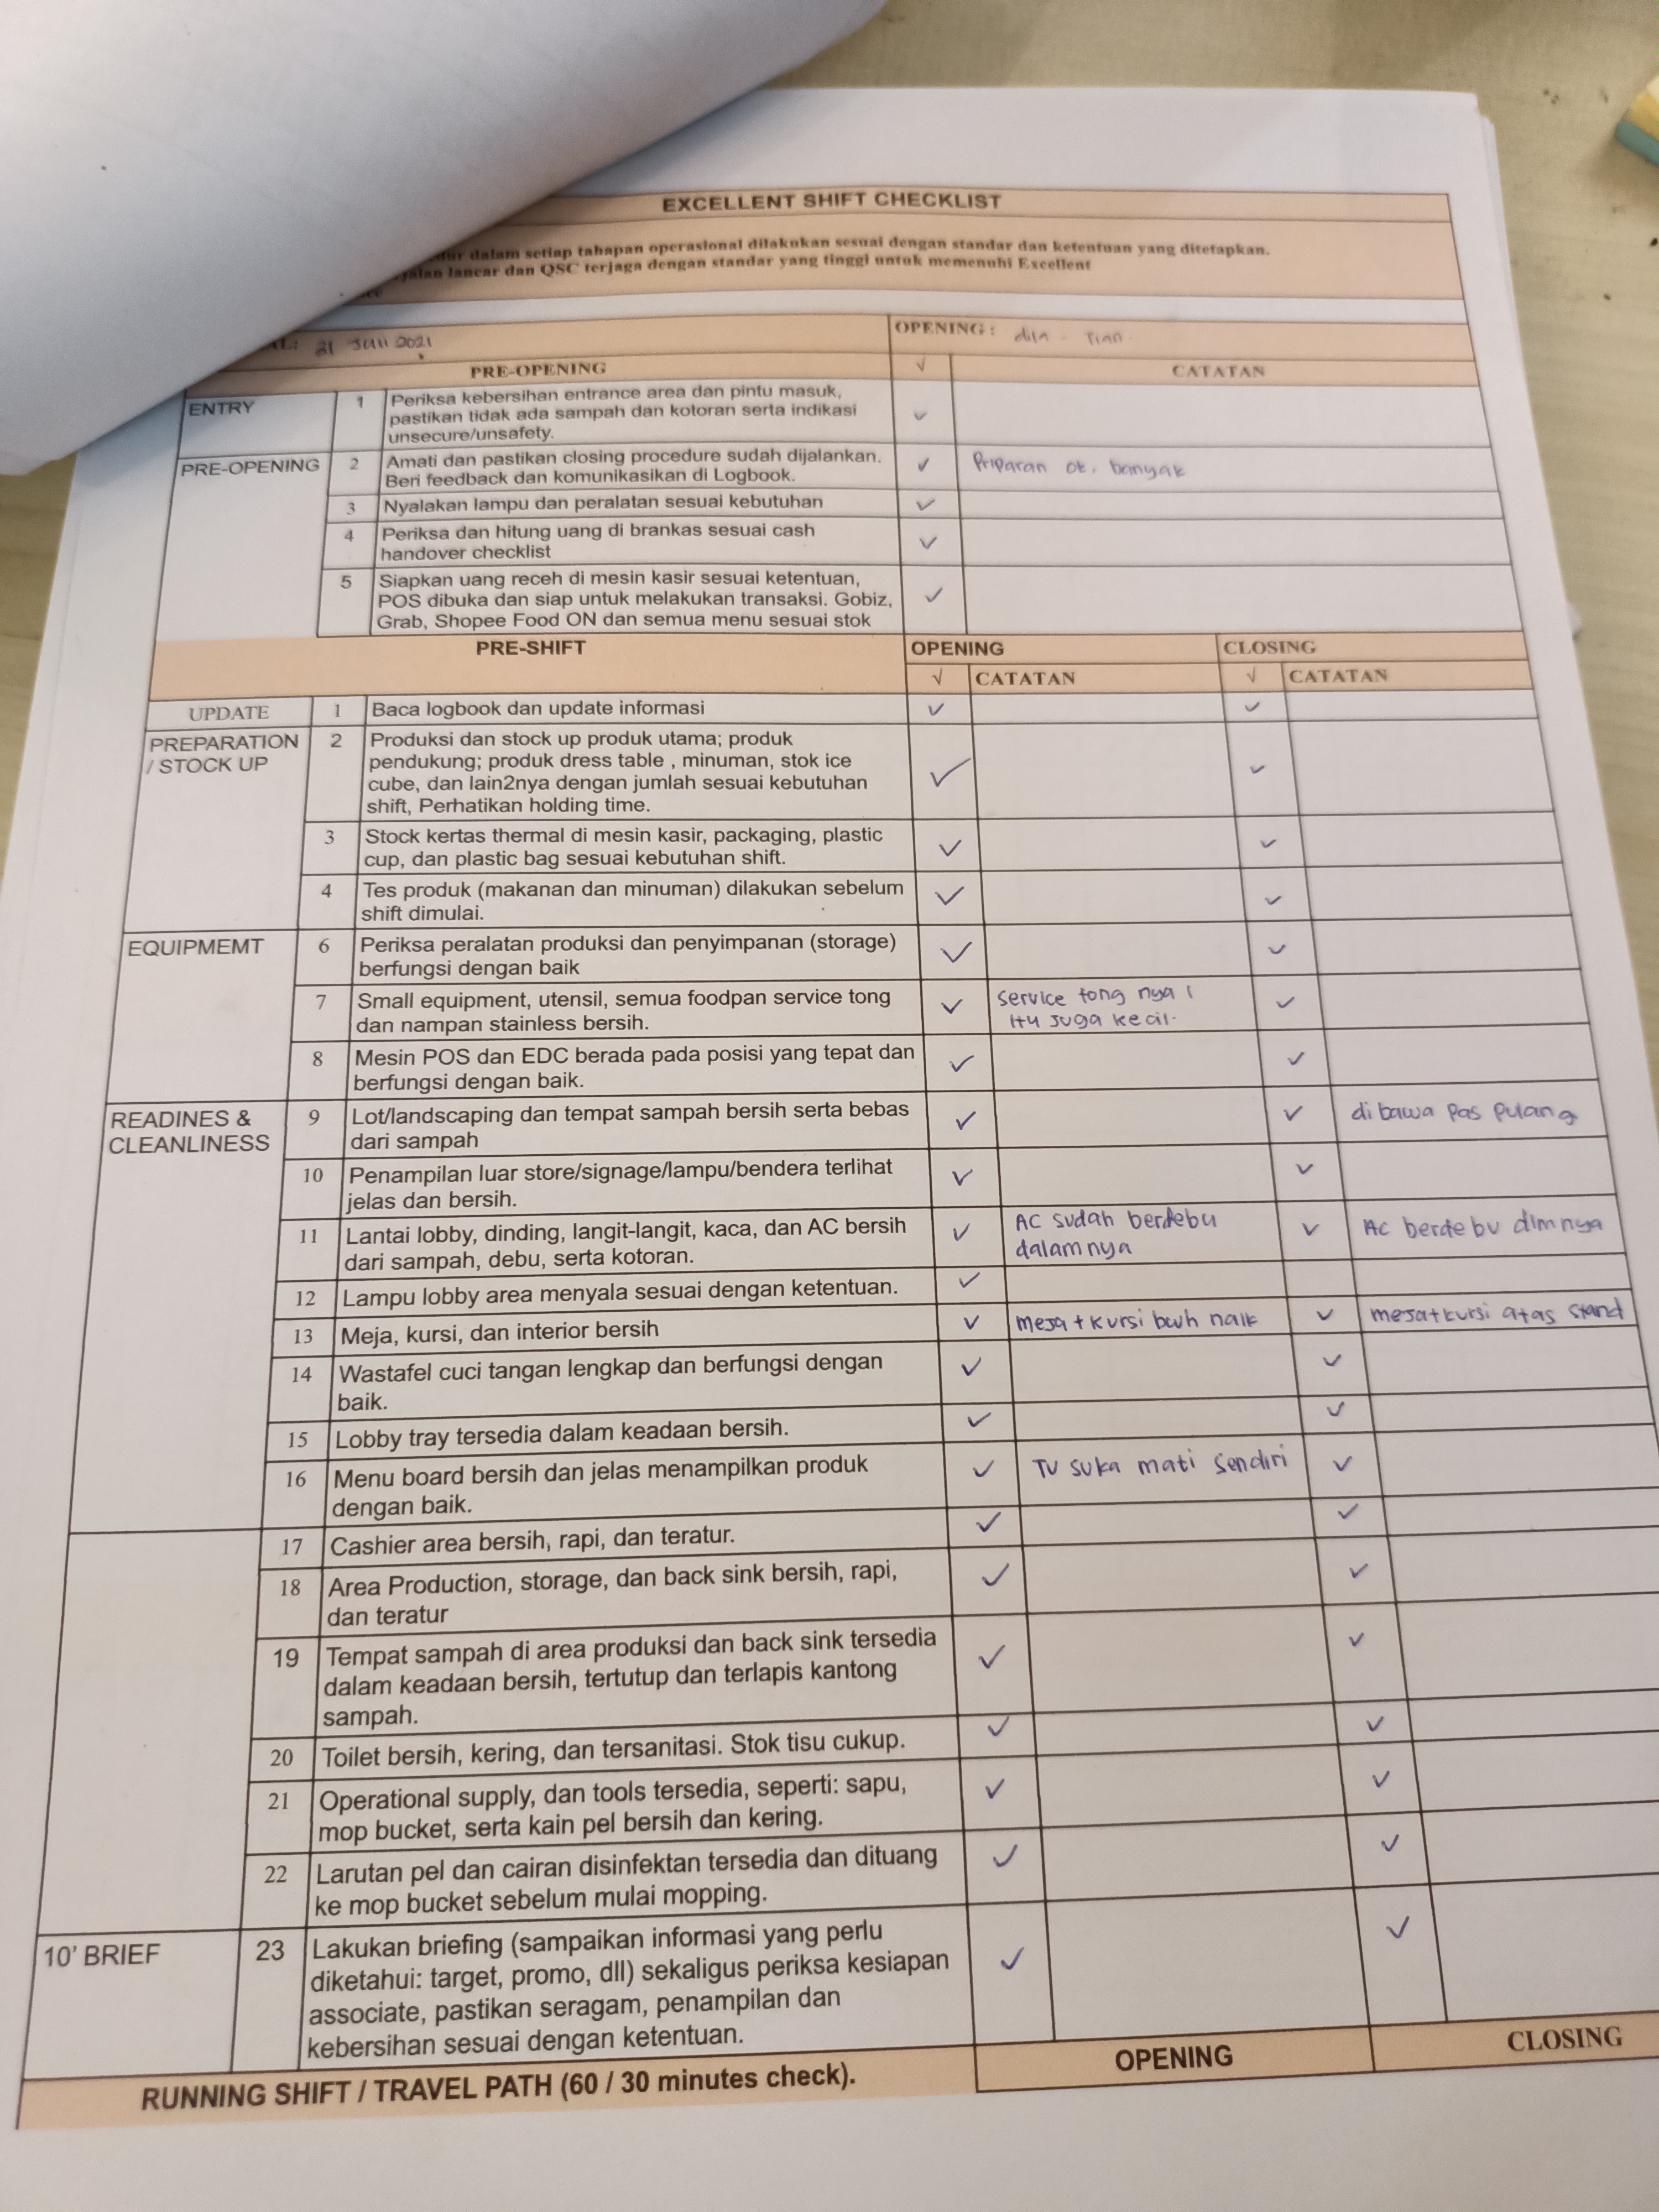 EXCELLENT SHIFT CHECKLIST
dalam setiap tahapan operasional dilakukan sesuai dengan standar dan ketentuan yang ditetapkan.
lancar dan QSC terjaga dengan standar yang tinggi untuk memenuhi Excellent
21
2021
OPENING: dila - Tian
PRE-OPENING √ CATATAN
ENTRY 1 Periksa kebersihan entrance area dan pintu masuk,
pastikan tidak ada sampah dan kotoran serta indikasi
unsecure/unsafety.
PRE-OPENING 2 Amati dan pastikan closing procedure sudah dijalankan.
Beri feedback dan komunikasikan di Logbook.
Priparan ok, banyak
3 Nyalakan lampu dan peralatan sesuai kebutuhan
4 Periksa dan hitung uang di brankas sesuai cash
handover checklist
5 Siapkan uang receh di mesin kasir sesuai ketentuan,
POS dibuka dan siap untuk melakukan transaksi. Gobiz,
Grab, Shopee Food ON dan semua menu sesuai stok
PRE-SHIFT OPENING CLOSING
√ CATATAN √ CATATAN
UPDATE 1 Baca logbook dan update informasi
PREPARATION
/ STOCK UP
2 Produksi dan stock up produk utama; produk
pendukung; produk dress table , minuman, stok ice
cube, dan lain2nya dengan jumlah sesuai kebutuhan
shift, Perhatikan holding time.
3 Stock kertas thermal di mesin kasir, packaging, plastic
cup, dan plastic bag sesuai kebutuhan shift.
4 Tes produk (makanan dan minuman) dilakukan sebelum
shift dimulai.
EQUIPMEMT 6 Periksa peralatan produksi dan penyimpanan (storage)
berfungsi dengan baik
7 Small equipment, utensil, semua foodpan service tong
dan nampan stainless bersih.
service tong nya 1
itu juga kecil.
8 Mesin POS dan EDC berada pada posisi yang tepat dan
berfungsi dengan baik.
READINES &
CLEANLINESS
9 Lot/landscaping dan tempat sampah bersih serta bebas
dari sampah
di bawa pas pulang
10 Penampilan luar store/signage/lampu/bendera terlihat
jelas dan bersih.
11 Lantai lobby, dinding, langit-langit, kaca, dan AC bersih
dari sampah, debu, serta kotoran.
AC sudah berdebu
dalamnya
AC berdebu dlmnya
12 Lampu lobby area menyala sesuai dengan ketentuan.
13 Meja, kursi, dan interior bersih
meja + kursi naik
meja+kursi atas stand
14 Wastafel cuci tangan lengkap dan berfungsi dengan
baik.
15 Lobby tray tersedia dalam keadaan bersih.
16 Menu board bersih dan jelas menampilkan produk
dengan baik.
TV suka mati sendiri
17 Cashier area bersih, rapi, dan teratur.
18 Area Production, storage, dan back sink bersih, rapi,
dan teratur
19 Tempat sampah di area produksi dan back sink tersedia
dalam keadaan bersih, tertutup dan terlapis kantong
sampah.
20 Toilet bersih, kering, dan tersanitasi. Stok tisu cukup.
21 Operational supply, dan tools tersedia, seperti: sapu,
mop bucket, serta kain pel bersih dan kering.
22 Larutan pel dan cairan disinfektan tersedia dan dituang
ke mop bucket sebelum mulai mopping.
10' BRIEF 23 Lakukan briefing (sampaikan informasi yang perlu
diketahui: target, promo, dll) sekaligus periksa kesiapan
associate, pastikan seragam, penampilan dan
kebersihan sesuai dengan ketentuan.
RUNNING SHIFT / TRAVEL PATH (60 / 30 minutes check). OPENING CLOSING